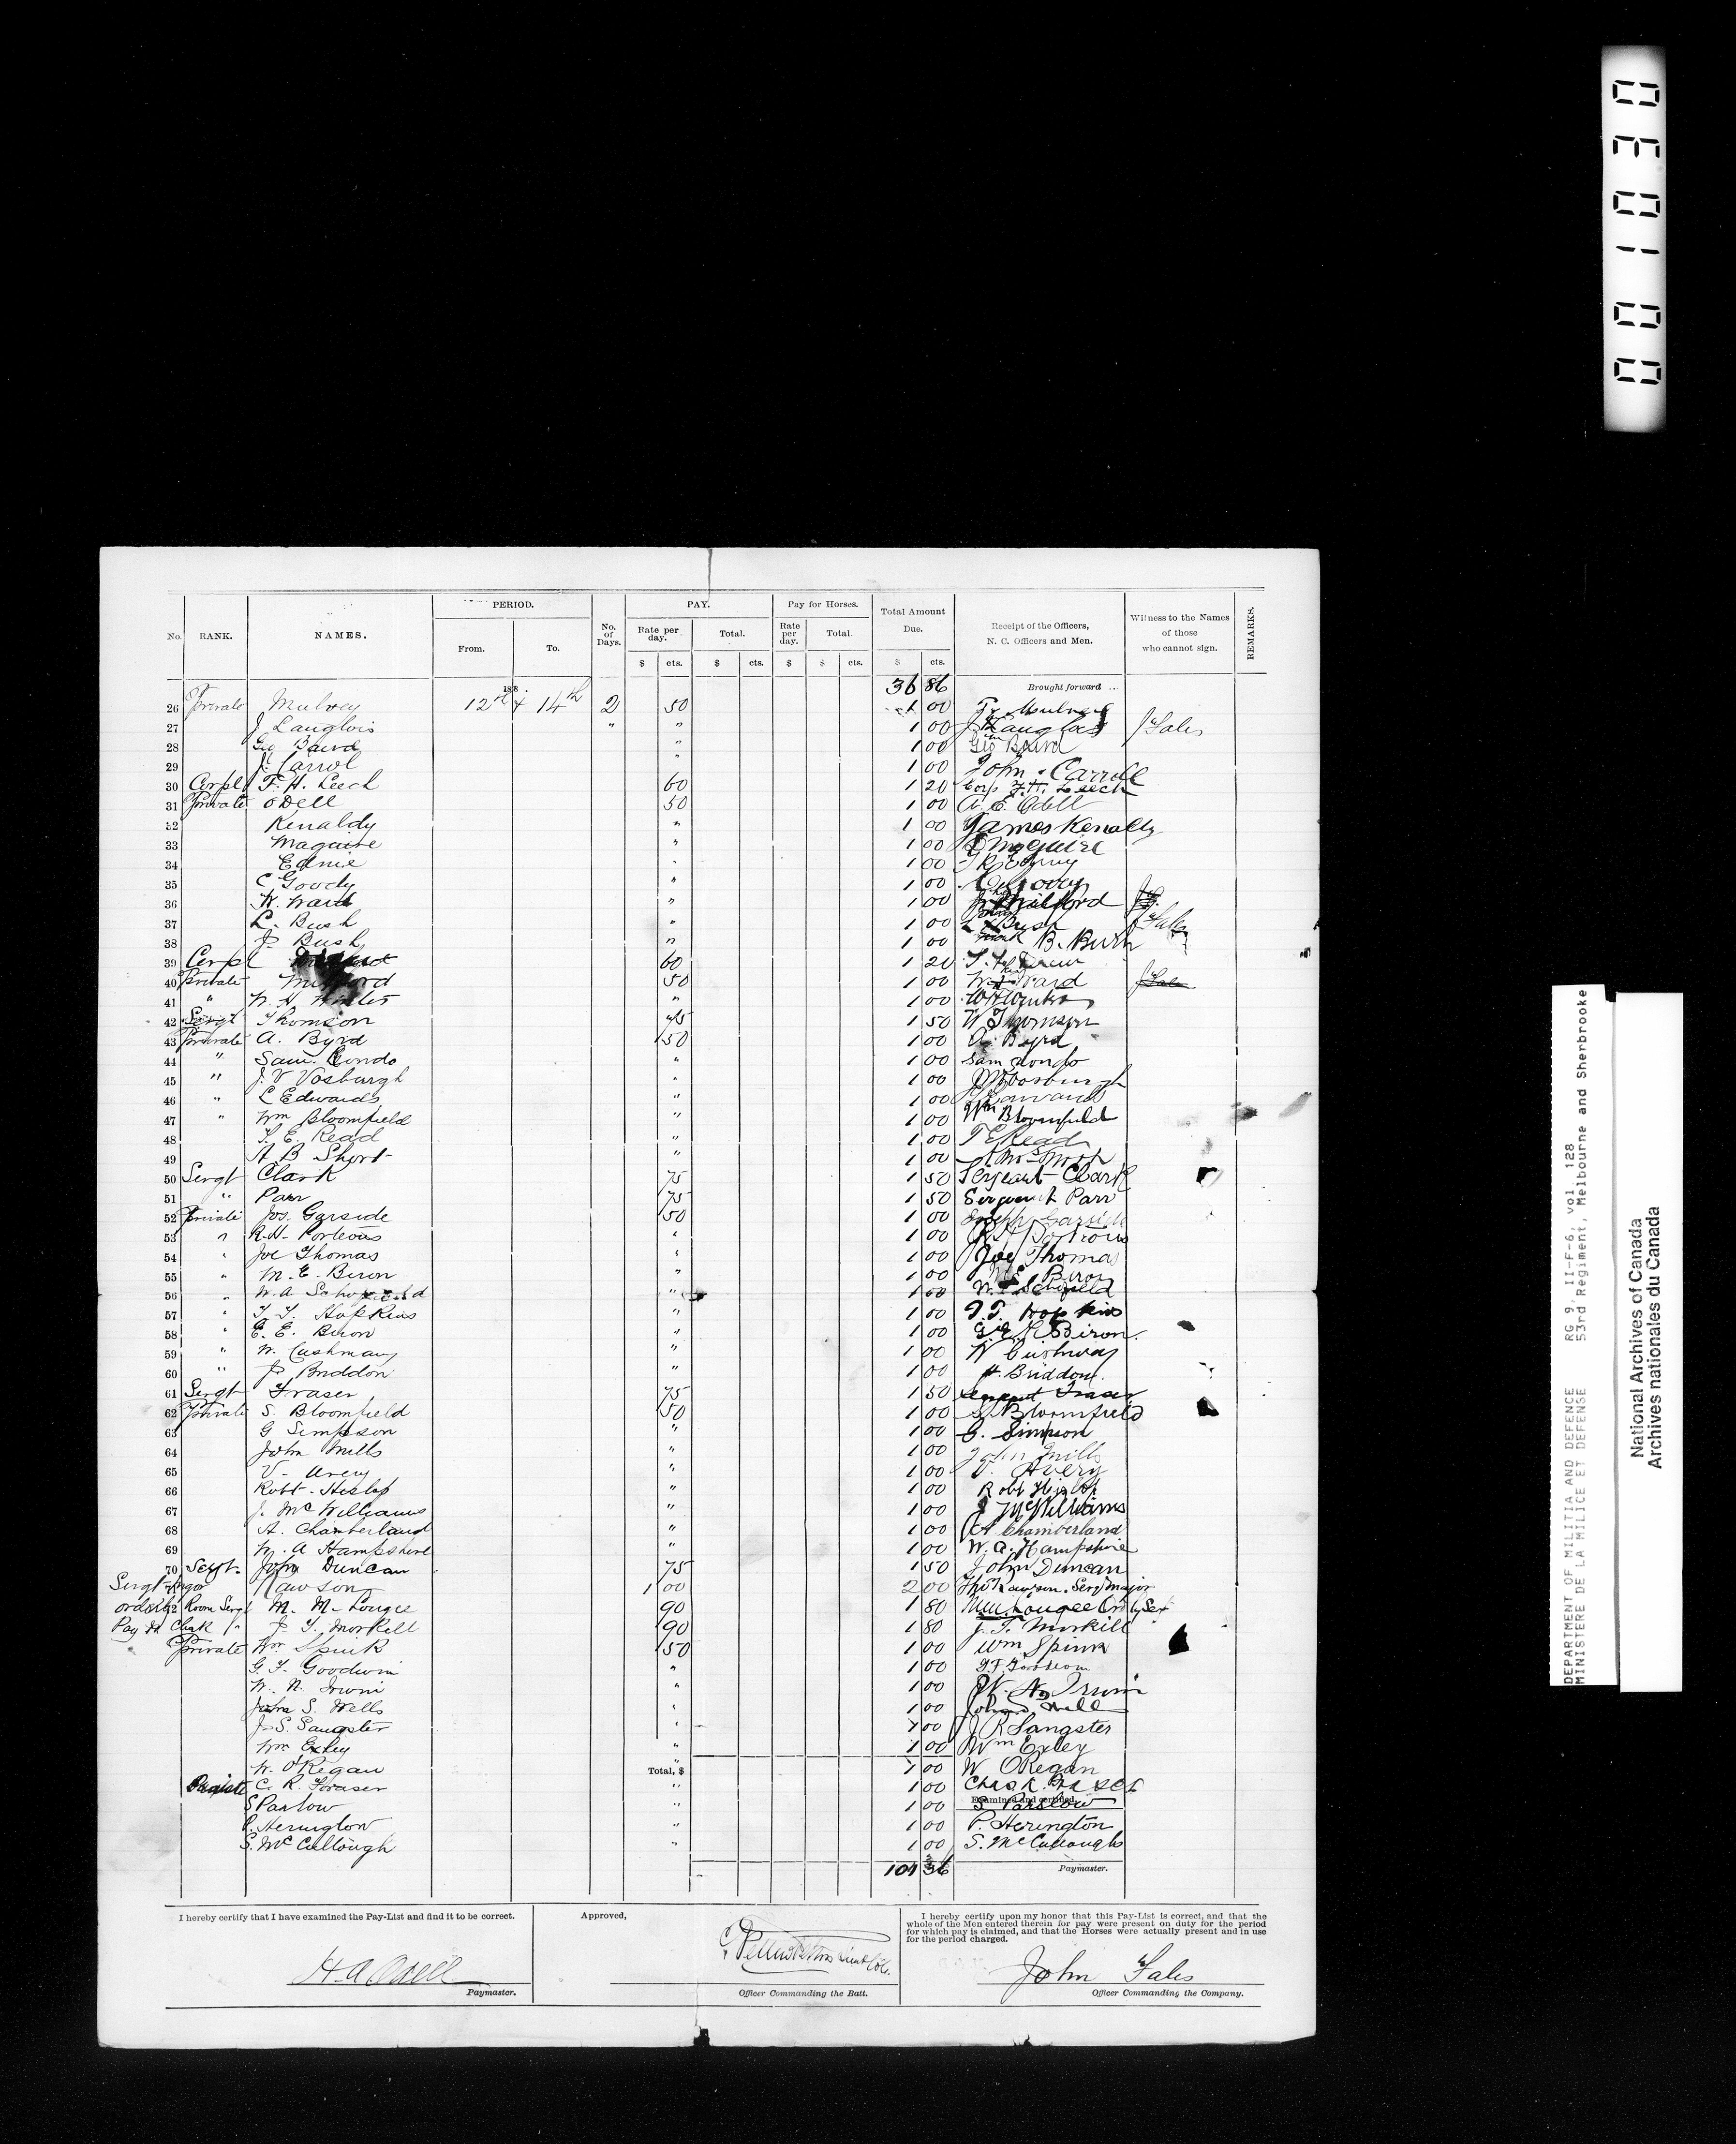 No. RANK. NAMES. PERIOD. From. To. No. of Days. PAY. Rate per day. $ cts. Total. $ cts. Pay for Horses. Rate per day. $ Total. $ cts. Total Amount Due. $ cts. Receipt of the Officers, N. C. Officers and Men. Witness to the Names of those who cannot sign. REMARKS.
36 86 Brought forward ...
26 Private Mulvey 188 12th & 14th 2 50 1 00
27 J. Langlois " " 1 00 J Langlois J Fales
28 Geo Baird " 1 00 Geo Baird
29 J. Carrol " 1 00 John Carroll
30 Corpl F. H. Leech 60 1 20 Corp F. H. Leech
31 Private ODell 50 1 00 A. E. Odell
32 Kenaldy " 1 00 James Kenaldy
33 Maguire " 1 00 McGuire
34 " 1 00
35 C Goody " 1 00
36 W. Ward " 1 00
37 L. Bush " 1 00 L Bush J Fales
38 J. Bush " 1 00
39 Corpl 60 1 20
40 Private 50 1 00 W Ward J Fales
41 " W. H. " 1 00
42 Sergt Thomson 75 1 50 W Thomson
43 Private A. Byrd 50 1 00 A. Byrd
44 " Sam. Londo " 1 00 Sam Londo
45 " J. V Vosburgh " 1 00 Vosburgh
46 " L Edwards " 1 00
47 " Wm Bloomfield " 1 00 Wm Bloomfield
48 T. E. Read " 1 00 T E Read
49 A B Short " 1 00
50 Sergt Clark 75 1 50 Serjeant Clark
51 " Parr 75 1 50 Sergeant Parr
52 Private Jos. Garside 50 1 00 Joseph Garside
53 " R. H. Porteous " 1 00 R H Porteous
54 " Joe Thomas " 1 00 Joe Thomas
55 " M. E. Biron " 1 00 M E Biron
56 " W. A " 1 00 Schofield
57 " T. T. Hopkins " 1 00 T. T. Hopkins
58 " E. E. Biron " 1 00 Biron.
59 " W. Cushman " 1 00 W
60 " Briddon " 1 00 Briddon.
61 Sergt Fraser 75 1 50 Fraser
62 Private S. Bloomfield 50 1 00 S. Bloomfield
63 G Simpson " 1 00 G. Simpson
64 John Mills " 1 00 John Mills
65 V. Avery " 1 00 V. Avery
66 Robt. Hislop " 1 00 Robt Hislop
67 J. McWilliams " 1 00 J McWilliams
68 A. Chamberland " 1 00 A Chamberland
69 W. A Hampshire " 1 00 W. A. Hampshire
70 Sergt. John Duncan 75 1 50 John Duncan
Sergt Major Rawson 1 00 2 00 Thos Rawson. Serg Major
Orderly Room Sergt M. M. Lougee 90 1 80 Lougee
Pay Clerk " J. T. Morkill 90 1 80 J. T. Morkill
Private Wm Spink 50 1 00 Wm Spink
G. F. Goodwin " 1 00
W. N. Irwin " 1 00 W. N. Irwin
John S. Wells " 1 00
Sangster " 1 00 J R Sangster
Wm Exley " 1 00 Wm Exley
W. O'Regan " 1 00 W ORegan
Total, $
Private C. R. Fraser " 1 00 Chas R. Fraser
Examined and certified,
S Parlow " 1 00 S. Parslow
P. Herington " 1 00 P. Herington
S. McCullough " 1 00 S. McCullough
36 Paymaster.
I hereby certify that I have examined the Pay-List and find it to be correct.
H. A. Odell
Paymaster.
Approved,
Officer Commanding the Batt.
I hereby certify upon my honor that this Pay-List is correct, and that the
whole of the Men entered therein for pay were present on duty for the period
for which pay is claimed, and that the Horses were actually present and in use
for the period charged.
John Fales
Officer Commanding the Company.
001030
DEPARTMENT OF MILITIA AND DEFENCE RG 9, II-F-6, vol 128
MINISTERE DE LA MILICE ET DEFENSE 53rd Regiment, Melbourne and Sherbrooke
National Archives of Canada
Archives nationales du Canada